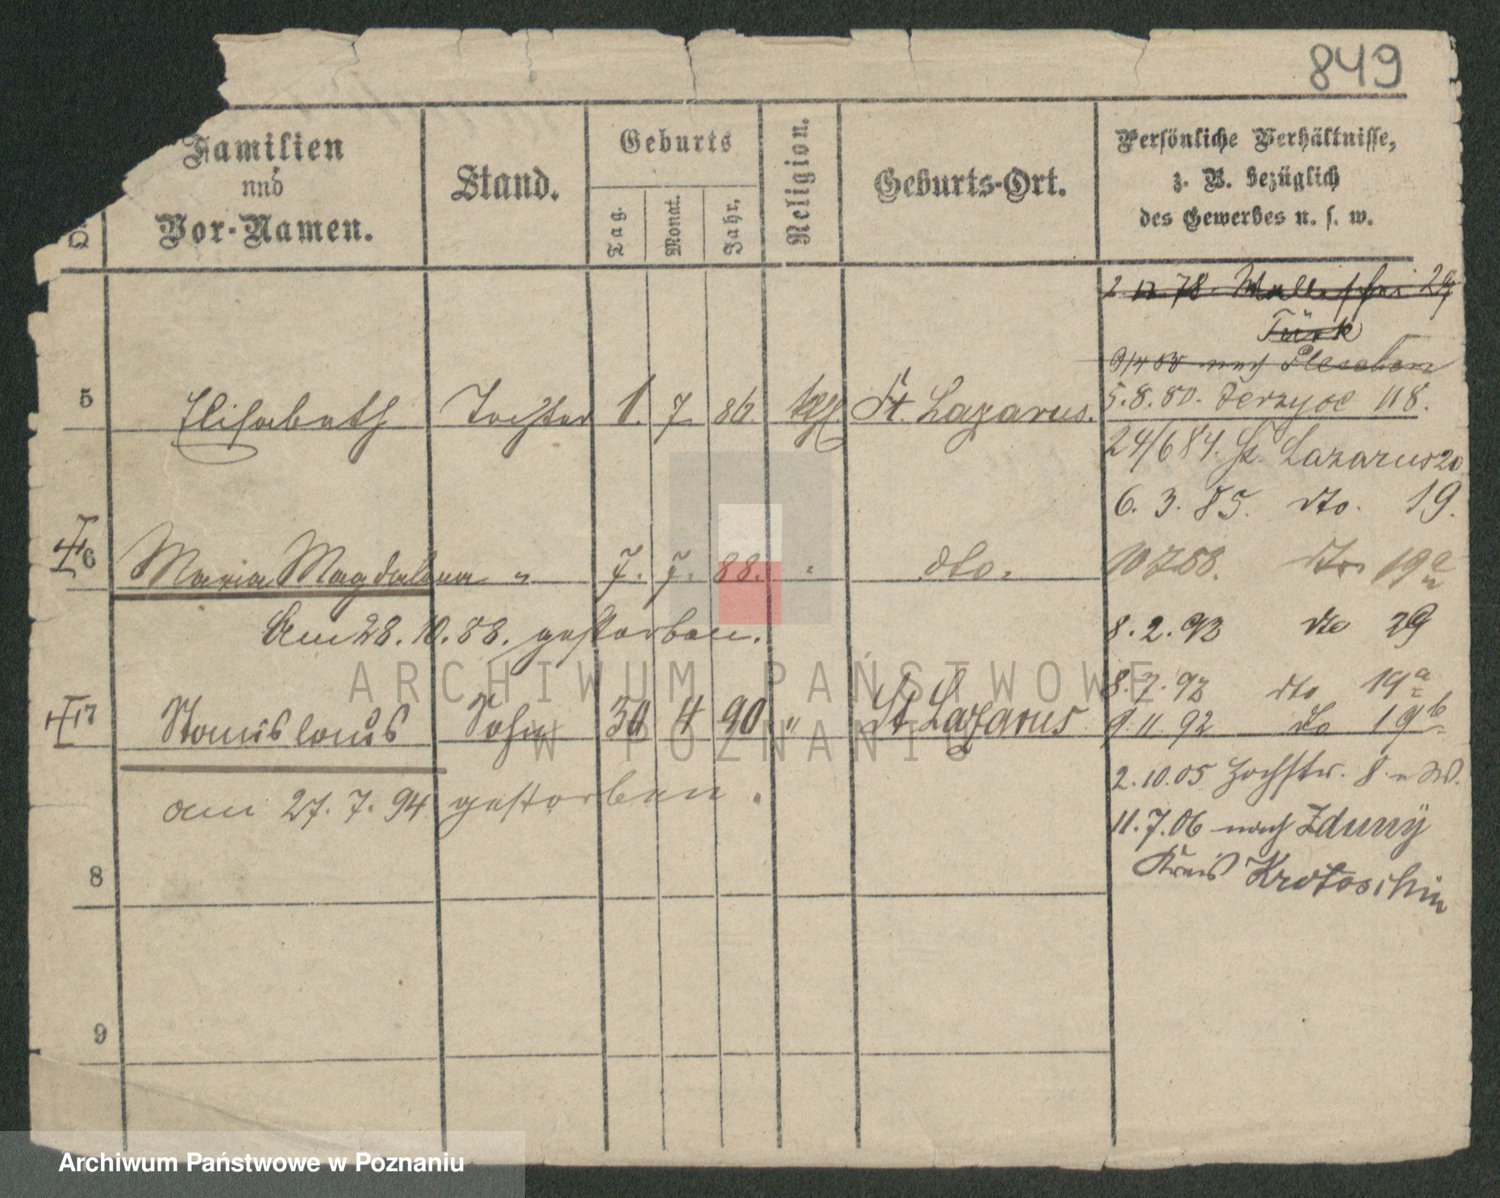 849
Familien
und
Vor-Namen.
Stand.
Geburts
Tag.
Monat.
Jahr.
Religion.
Geburts-Ort.
Persönliche Verhältnisse,
z. B. bezüglich
des Gewerbes u. s. w.
2. 12. 78. Wallischei
Türk
nach Pleschen
5 Elisabeth Tochter 1. 7. 86. kath St. Lazarus.
5. 8. 80. Jerzyce 118.
24/6 84. St. Lazarus 20
6. 3. 85. dto. 19.
6 Maria Magdalena " 7. 7. 88. " dto.
10 7 88. dto 19a
Am 28. 10. 88. gestorben.
8. 2. 92 dto 29
8. 7. 92 dto 19a
7 Stanislaus Sohn 30 4 90 " St Lazarus
9. 11. 92 do 19b
am 27. 7. 94 gestorben.
2. 10. 05 Hochstr. 8.
11. 7. 06 nach Zduny
Kreis Krotoschin
8
9
ARCHIWUM PAŃSTWOWE
W POZNANIU
Archiwum Państwowe w Poznaniu